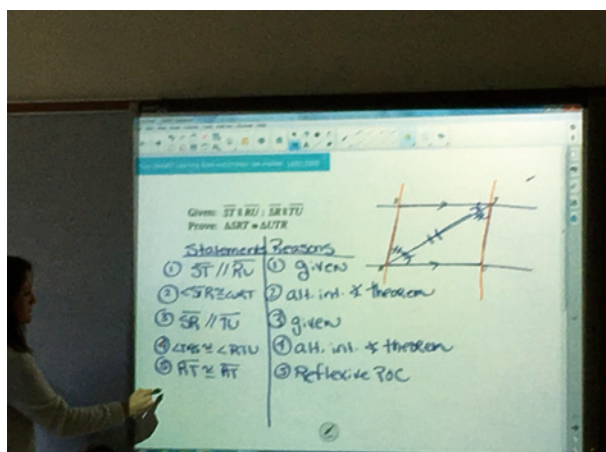 Given: ST ∥ RU ; SR ∥ TU
Prove: ΔSRT ≅ ΔUTR
Statements Reasons
① ST // RU ① given
② alt. int. ∡ theorem
③ SR // TU ③ given
④ ≅ <RTU ④ alt. int. ∡ theorem
⑤ RT ≅ RT ⑤ Reflexive POC